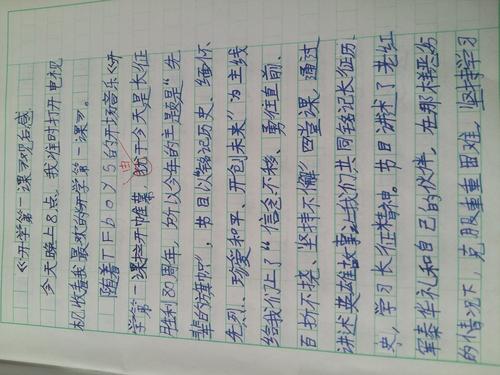 《开学第一课》观后感
今天晚上8点，我准时打开电视
机收看我最欢的开学第一课》。
随着TFboys的开场音乐《开
学第一课拉开帷幕 由于今天是长征
胜利80周年，所以今年的主题是"先
辈的旗帜"，节目以"铭记历史、缅怀
先烈、珍爱和平、开创未来"为主线
给我们上了"信念不移、勇往直前、
百折不挠、坚持不懈"四堂课，通过
讲述英雄故事让我们共同铭记长征历
史，学习长征精神。节目讲述了老红
军秦华礼和自己的伙伴，在那样恶劣
的情况下，克服重重困难，坚持学习